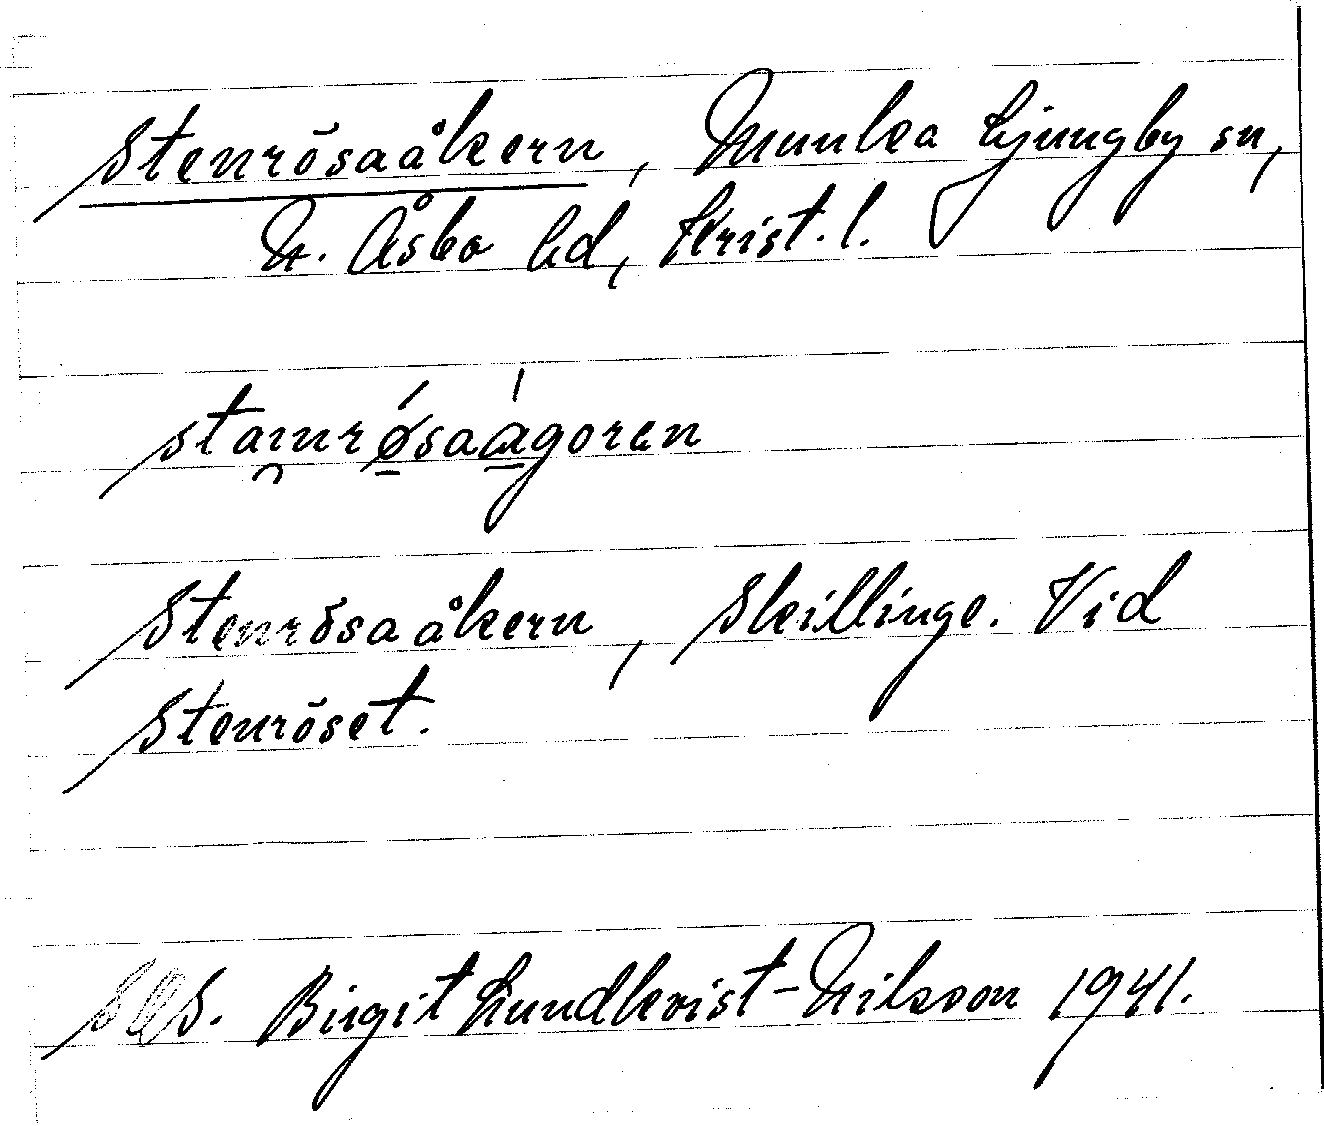 Stenrösaåkern, Munka Ljungby sn,
N. Åsbo hd, Krist. l.
stai̯nrǿsaágoren
Stenrösaåkern, Skillinge. Vid
stenröset.
Birgit Lundkvist-Nilsson 1941.